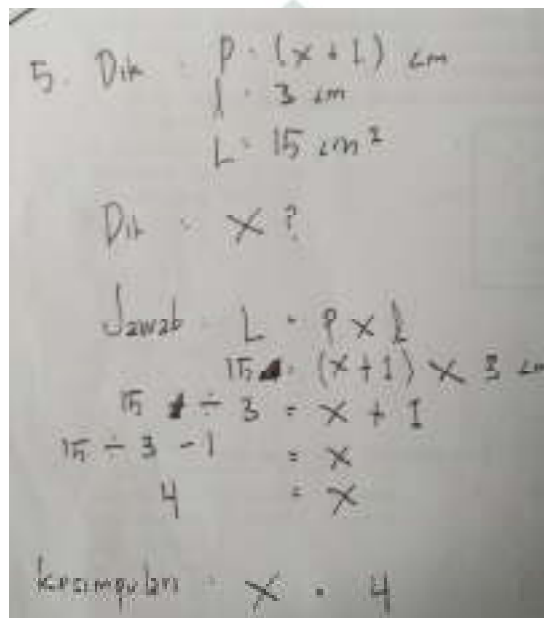 5. Dik : P = (x + 1) cm
l = 3 cm
L = 15 cm²
Dit : x ?
Jawab : L = P x l
15 = (x+1) x 3 cm
15 ÷ 3 = x + 1
15 ÷ 3 - 1 = x
4 = x
Kesimpulan : x = 4